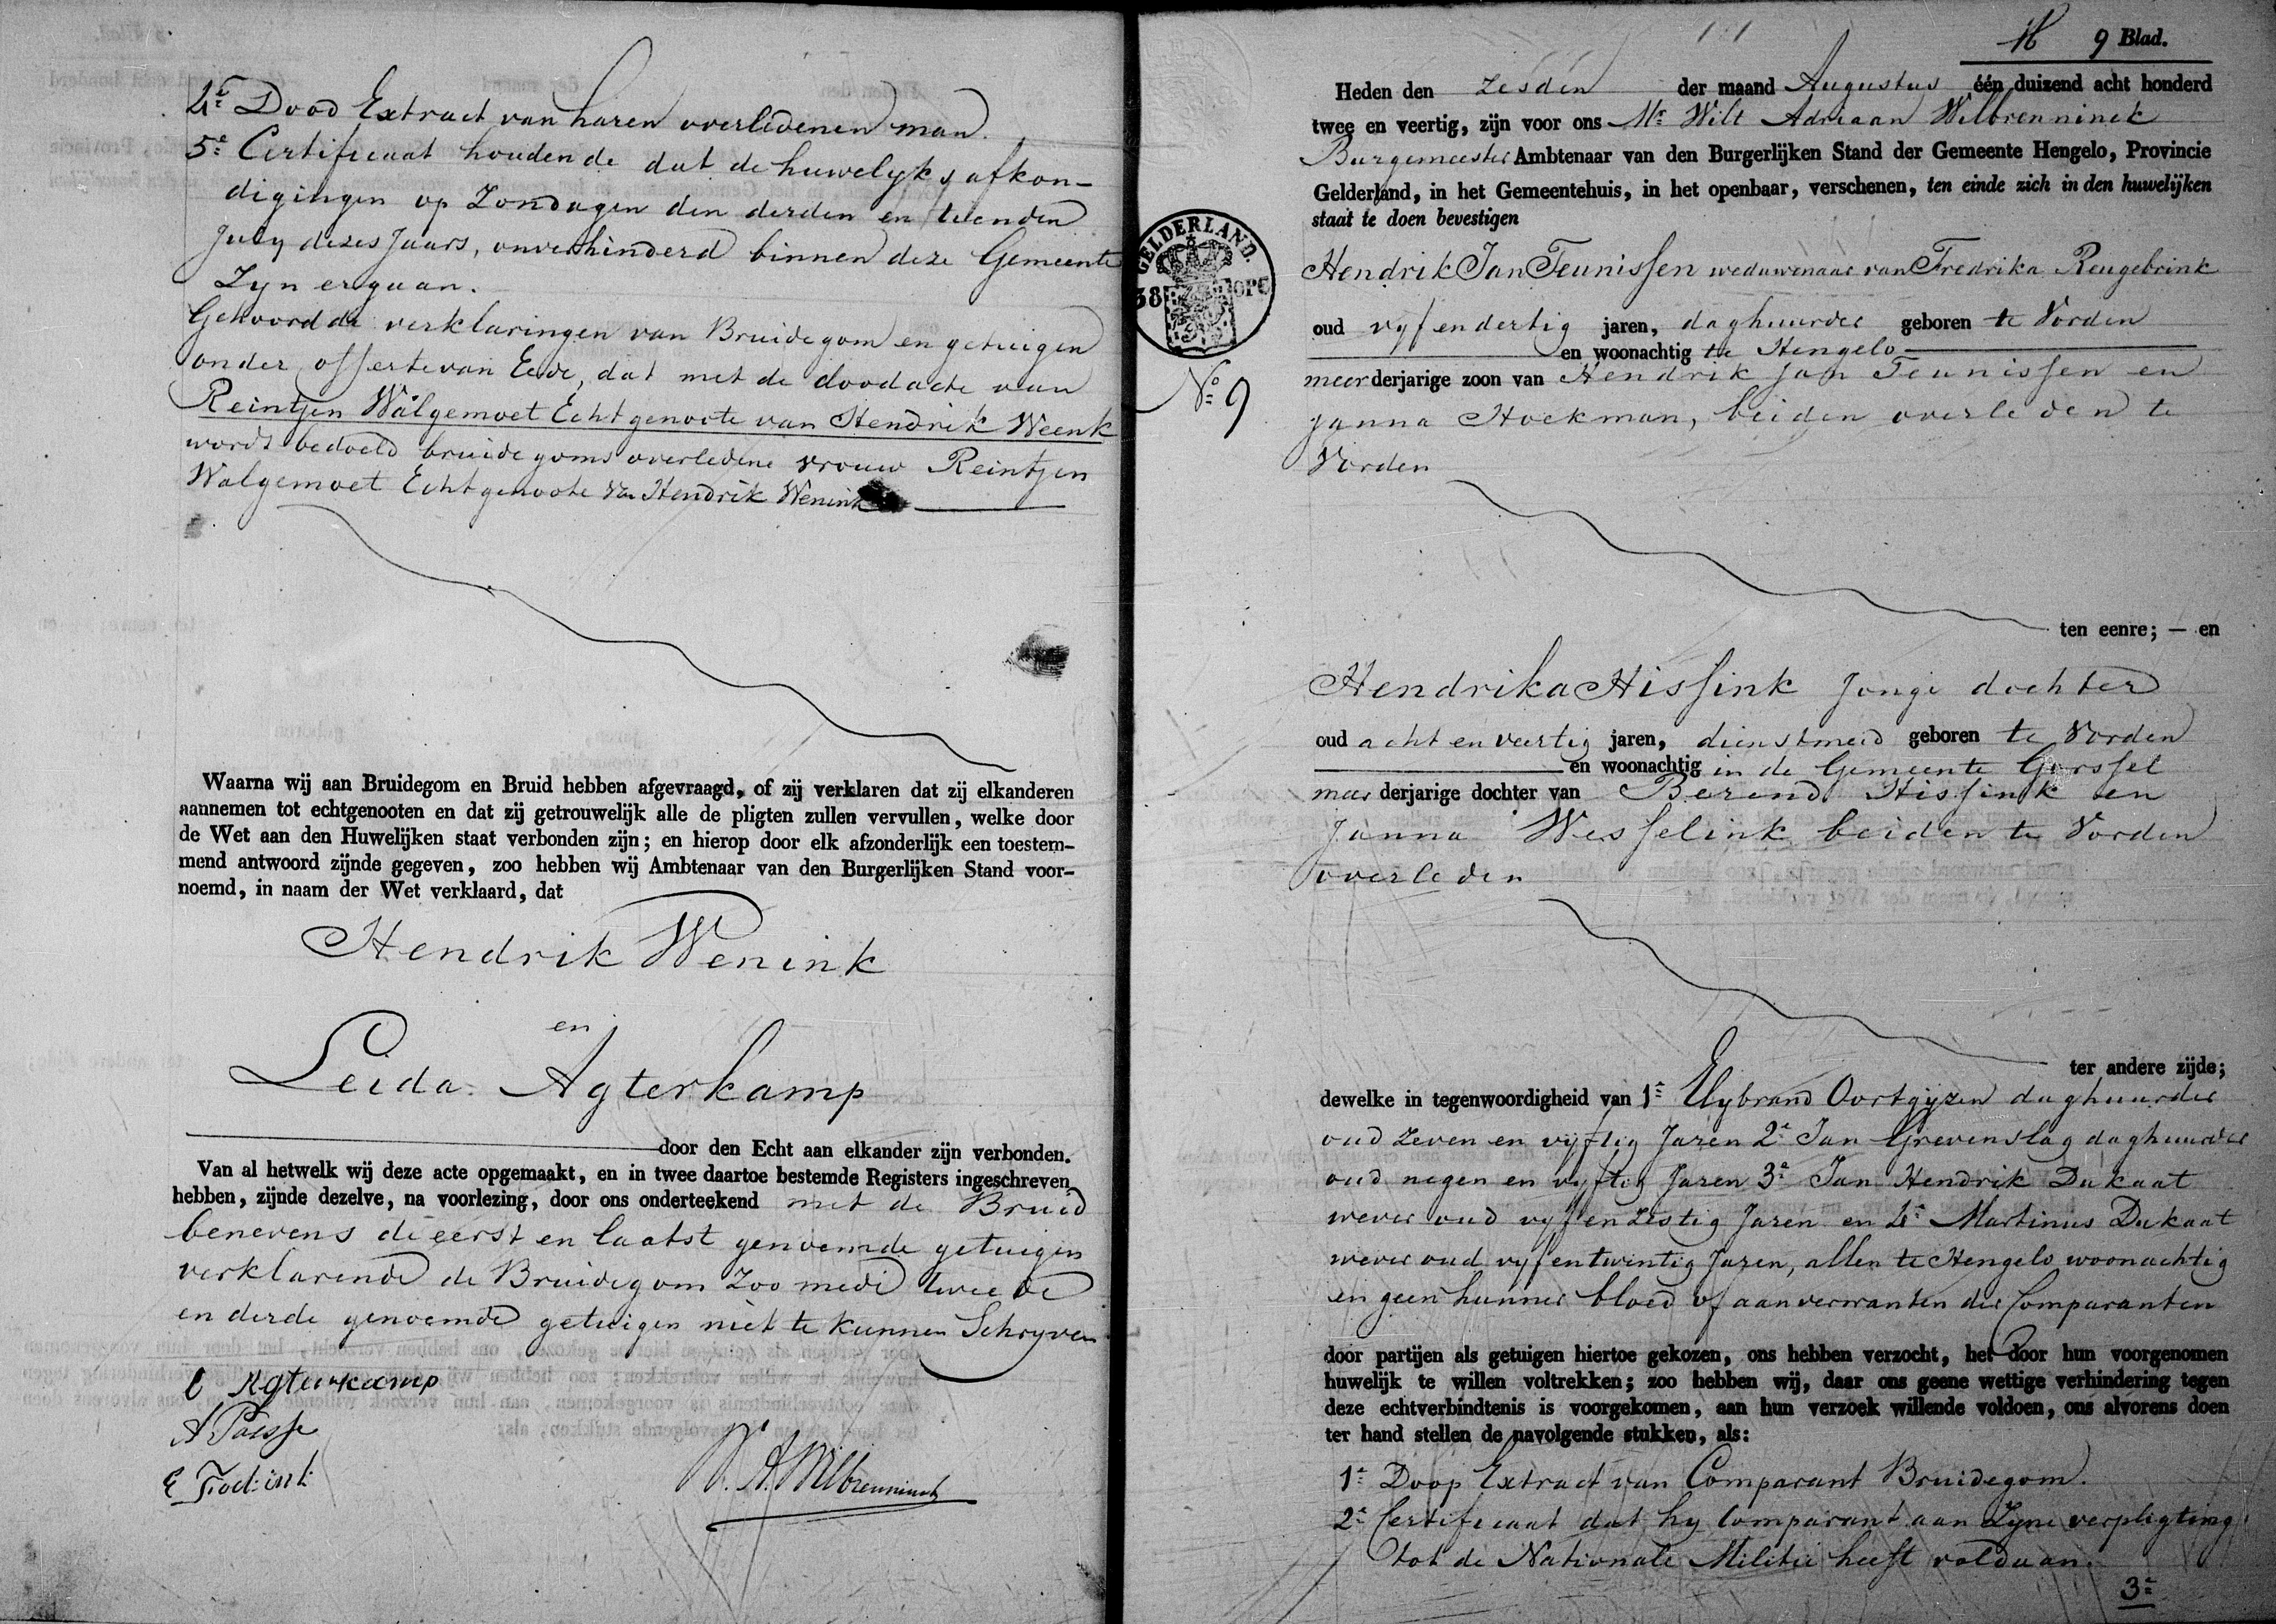 4e Dood Extract van haren overledenen man.
5e Certificaat houdende dat de huwelyks afkon-
digingen op Zondagen den derden en tienden
July dezes Jaars, onverhinderd binnen deze Gemeente
Zyn ergaan.
Gehoord de verklaringen van Bruidegom en getuigen
onder offerte van Eede, dat met de doodacte van
Reintjen Walgemoet Echtgenoote van Hendrik Weenk
wordt bedoeld bruidegoms overledene vrouw Reintjen
Walgemoet Echtgenoote van Hendrik Wenink
Waarna wij aan Bruidegom en Bruid hebben afgevraagd, of zij verklaren dat zij elkanderen
aannemen tot echtgenooten en dat zij getrouwelijk alle de pligten zullen vervullen, welke door
de Wet aan den Huwelijken staat verbonden zijn; en hierop door elk afzonderlijk een toestem-
mend antwoord zijnde gegeven, zoo hebben wij Ambtenaar van den Burgerlijken Stand voor-
noemd, in naam der Wet verklaard, dat
Hendrik Wenink
en
Leida Agterkamp
door den Echt aan elkander zijn verbonden.
Van al hetwelk wij deze acte opgemaakt, en in twee daartoe bestemde Registers ingeschreven
hebben, zijnde dezelve, na voorlezing, door ons onderteekend met de Bruid
benevens de eerst en laatst genoemde getuigen
verklarende de Bruidegom Zoo mede twee de
en derde genoemde getuigen niet te kunnen Schryven
Agterkamp
W. A. Wilbrenninck
9 Blad.
Heden den zesden der maand Augustus één duizend acht honderd
twee en veertig, zijn voor ons Mr Wilt Adriaan Wilbrenninck
Burgemeester Ambtenaar van den Burgerlijken Stand der Gemeente Hengelo, Provincie
Gelderland, in het Gemeentehuis, in het openbaar, verschenen, ten einde zich in den huwelijken
staat te doen bevestigen
GELDERLAND.
38 OPC
No 9
Hendrik Jan Teunissen weduwenaar van Fredrika Reugebrink
oud vyf en dertig jaren, daghuurder geboren te Vorden
en woonachtig te Hengelo
meerderjarige zoon van Hendrik Jan Teunissen en
Janna Hoekman, beiden overleden te
Vorden
ten eenre; — en
Hendrika Hissink Jonge dochter
oud acht en veertig jaren, dienstmeid geboren te Vorden
en woonachtig in de Gemeente Gorssel
meer derjarige dochter van Berend Hissink en
Janna Wesselink beiden te Vorden
overleden
ter andere zijde;
dewelke in tegenwoordigheid van 1e Elybrand Oortgyzen daghuurder
oud Zeven en vyftig Jaren 2e Jan Grevenslag daghuurder
oud negen en vyftig Jaren 3e Jan Hendrik Dukaat
wever oud vyf en zestig Jaren en 4e Martinus Dukaat
wever oud vyf en twintig Jaren, allen te Hengelo woonachtig
en geen hunner bloed of aanverwanten der Comparanten
door partijen als getuigen hiertoe gekozen, ons hebben verzocht, het door hun voorgenomen
huwelijk te willen voltrekken; zoo hebben wij, daar ons geene wettige verhindering tegen
deze echtverbindtenis is voorgekomen, aan hun verzoek willende voldoen, ons alvorens doen
ter hand stellen de navolgende stukken, als:
1e Doop Extract van Comparant Bruidegom.
2e Certificaat dat hy Comparant aan Zyne verpligting
tot de Nationale Militie heeft voldaan.
3e